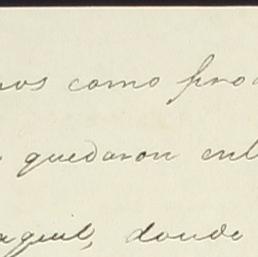 nos como pro
quedaron en
aquil, donde